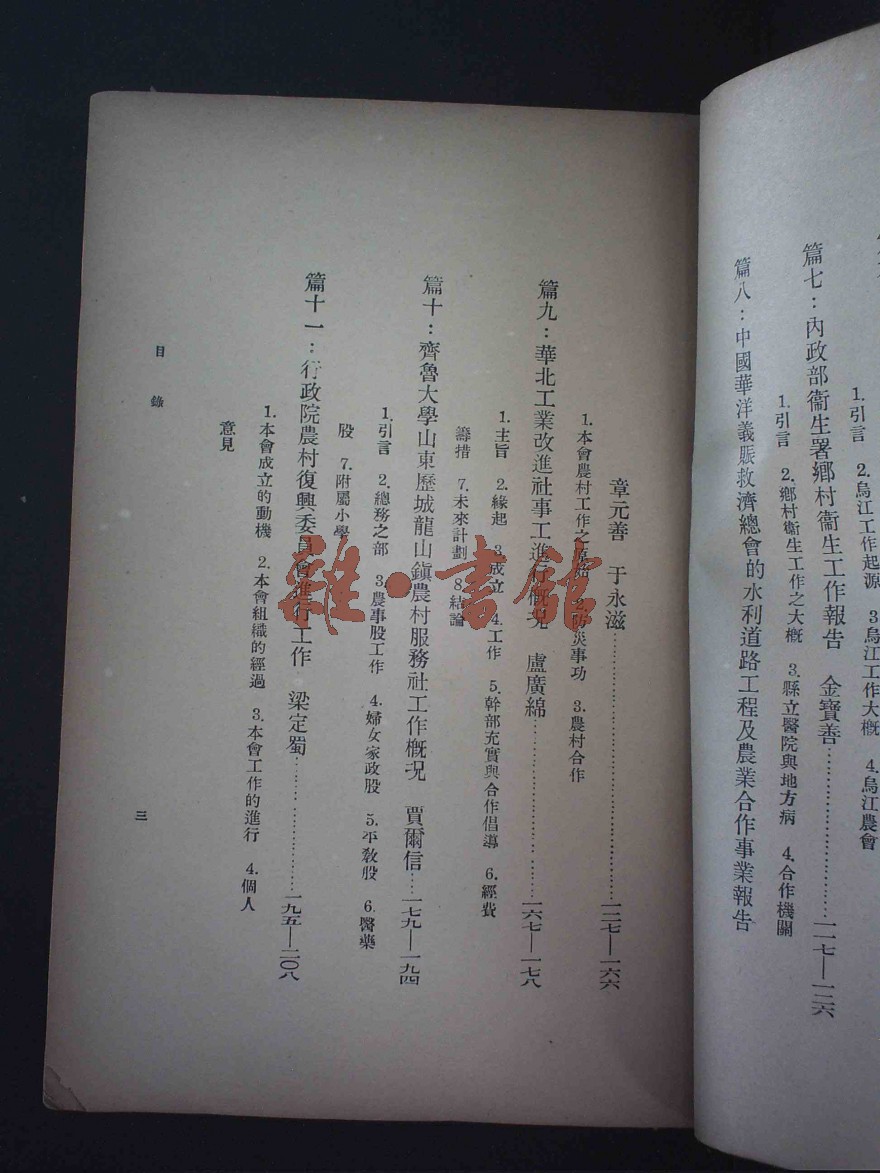 1.引言 2.烏江工作起源 3.烏江工作大概 4.烏江農會
篇七：內政部衞生署鄉村衞生工作報告 金寶善……一一七—一二六
1.引言 2.鄉村衞生工作之大概 3.縣立醫院與地方病 4.合作機關
篇八：中國華洋義賑救濟總會的水利道路工程及農業合作事業報告
章元善 于永滋……一二七—一六六
1.本會農村工作之原始 2.防災事功 3.農村合作
篇九：華北工業改進社事工進行概況 盧廣綿……一六七—一七八
1.主旨 2.緣起 3.成立 4.工作 5.幹部充實與合作倡導 6.經費
籌措 7.未來計劃 8.結論
篇十：齊魯大學山東歷城龍山鎮農村服務社工作概況 賈爾信……一七九—一九四
1.引言 2.總務之部 3.農事股工作 4.婦女家政股 5.平教股 6.醫藥
股 7.附屬小學
篇十一：行政院農村復興委員會進行工作 梁定蜀……一九五—二〇八
1.本會成立的動機 2.本會組織的經過 3.本會工作的進行 4.個人
意見
目錄
三
雜·書館